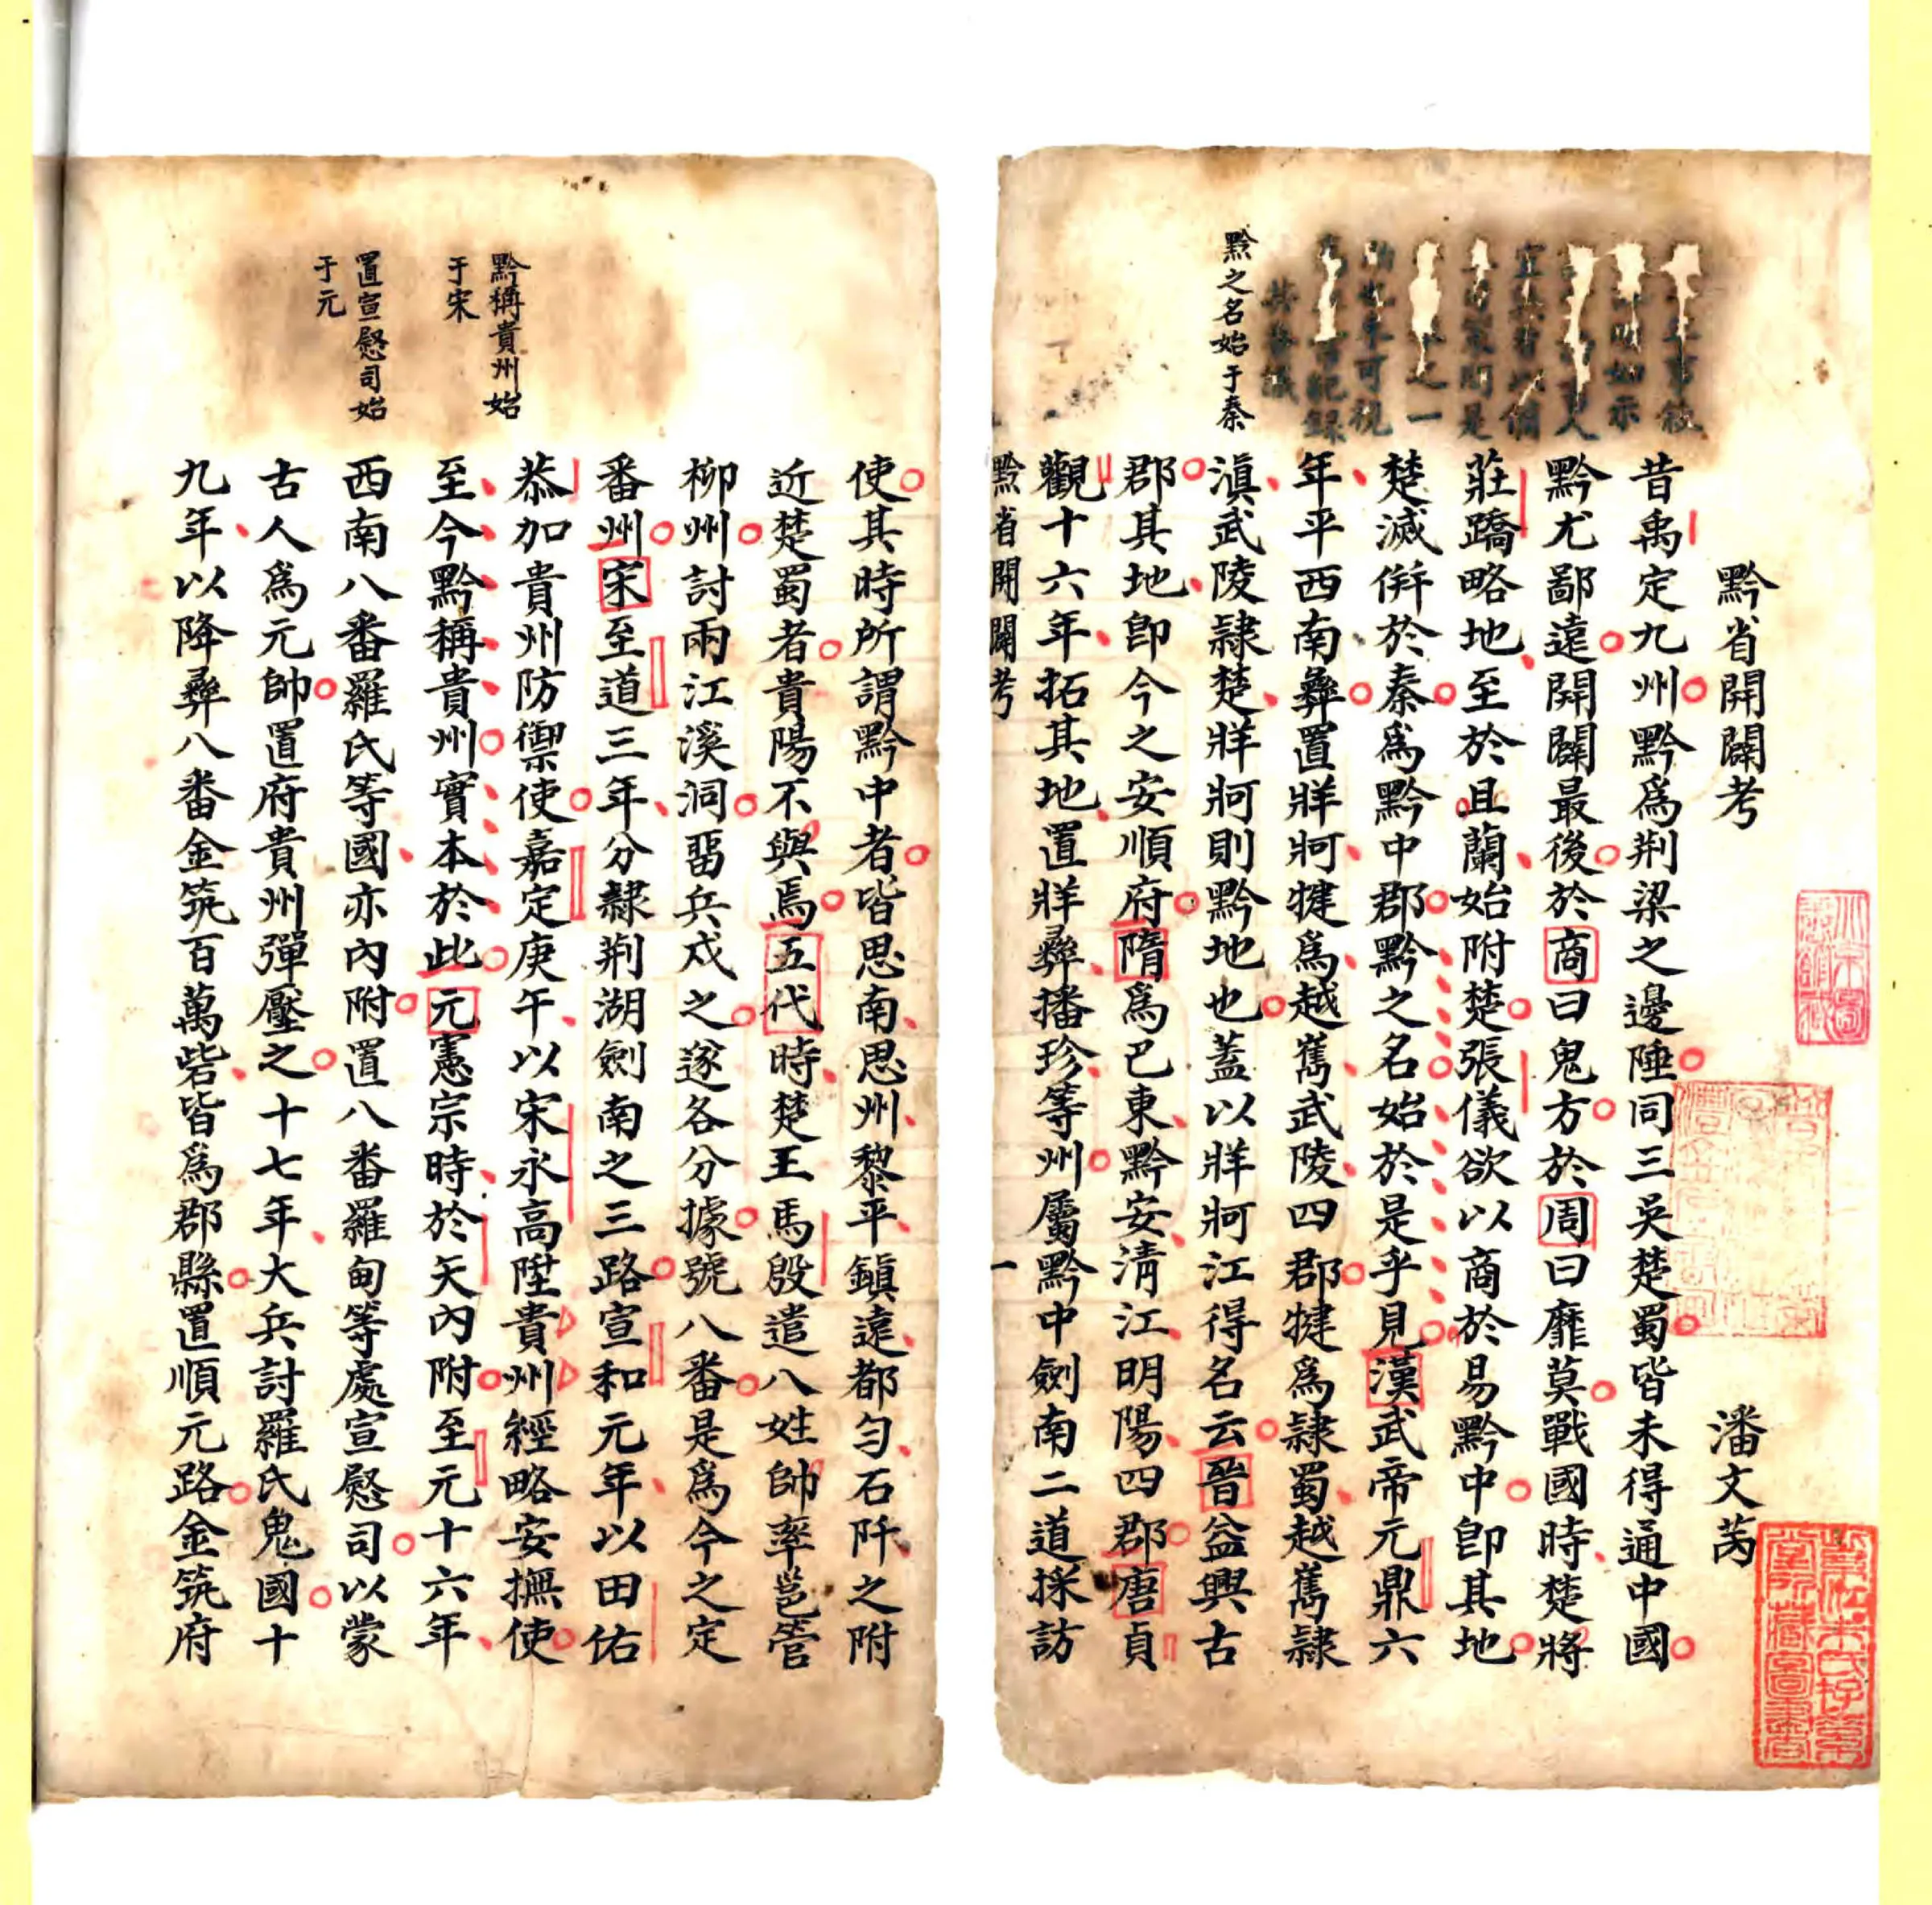 黔省開闢考
潘文芮
昔禹定九州黔爲荆梁之邊陲同三吳楚蜀皆未得通中國
黔尤鄙遠開闢最後於商曰鬼方於周曰靡莫戰國時楚將
莊蹻略地至於且蘭始附楚張儀欲以商於易黔中卽其地
楚滅併於秦爲黔中郡黔之名始於是乎見漢武帝元鼎六
年平西南彝置牂牁犍爲越嶲武陵四郡犍爲隷蜀越嶲隷
滇武陵隷楚牂牁則黔地也蓋以牂牁江得名云晉益興古
郡其地卽今之安順府隋爲巴東黔安清江明陽四郡唐貞
觀十六年拓其地置牂彝播珍等州屬黔中劍南二道採訪
黔之名始于秦
黔省開闢考
一
使其時所謂黔中者皆思南思州黎平鎮遠都勻石阡之附
近楚蜀者貴陽不與焉五代時楚王馬殷遣八姓帥率邕管
柳州討兩江溪洞畱兵戍之遂各分據號八番是爲今之定
番州宋至道三年分隸荆湖劍南之三路宣和元年以田佑
恭加貴州防禦使嘉定庚午以宋永高陞貴州經略安撫使
至今黔稱貴州實本於此元憲宗時於矢內附至元十六年
西南八番羅氏等國亦內附置八番羅甸等處宣慰司以蒙
古人爲元帥置府貴州彈壓之十七年大兵討羅氏鬼國十
九年以降彝八番金筑百萬砦皆爲郡縣置順元路金筑府
黔稱貴州始
于宋
置宣慰司始
于元